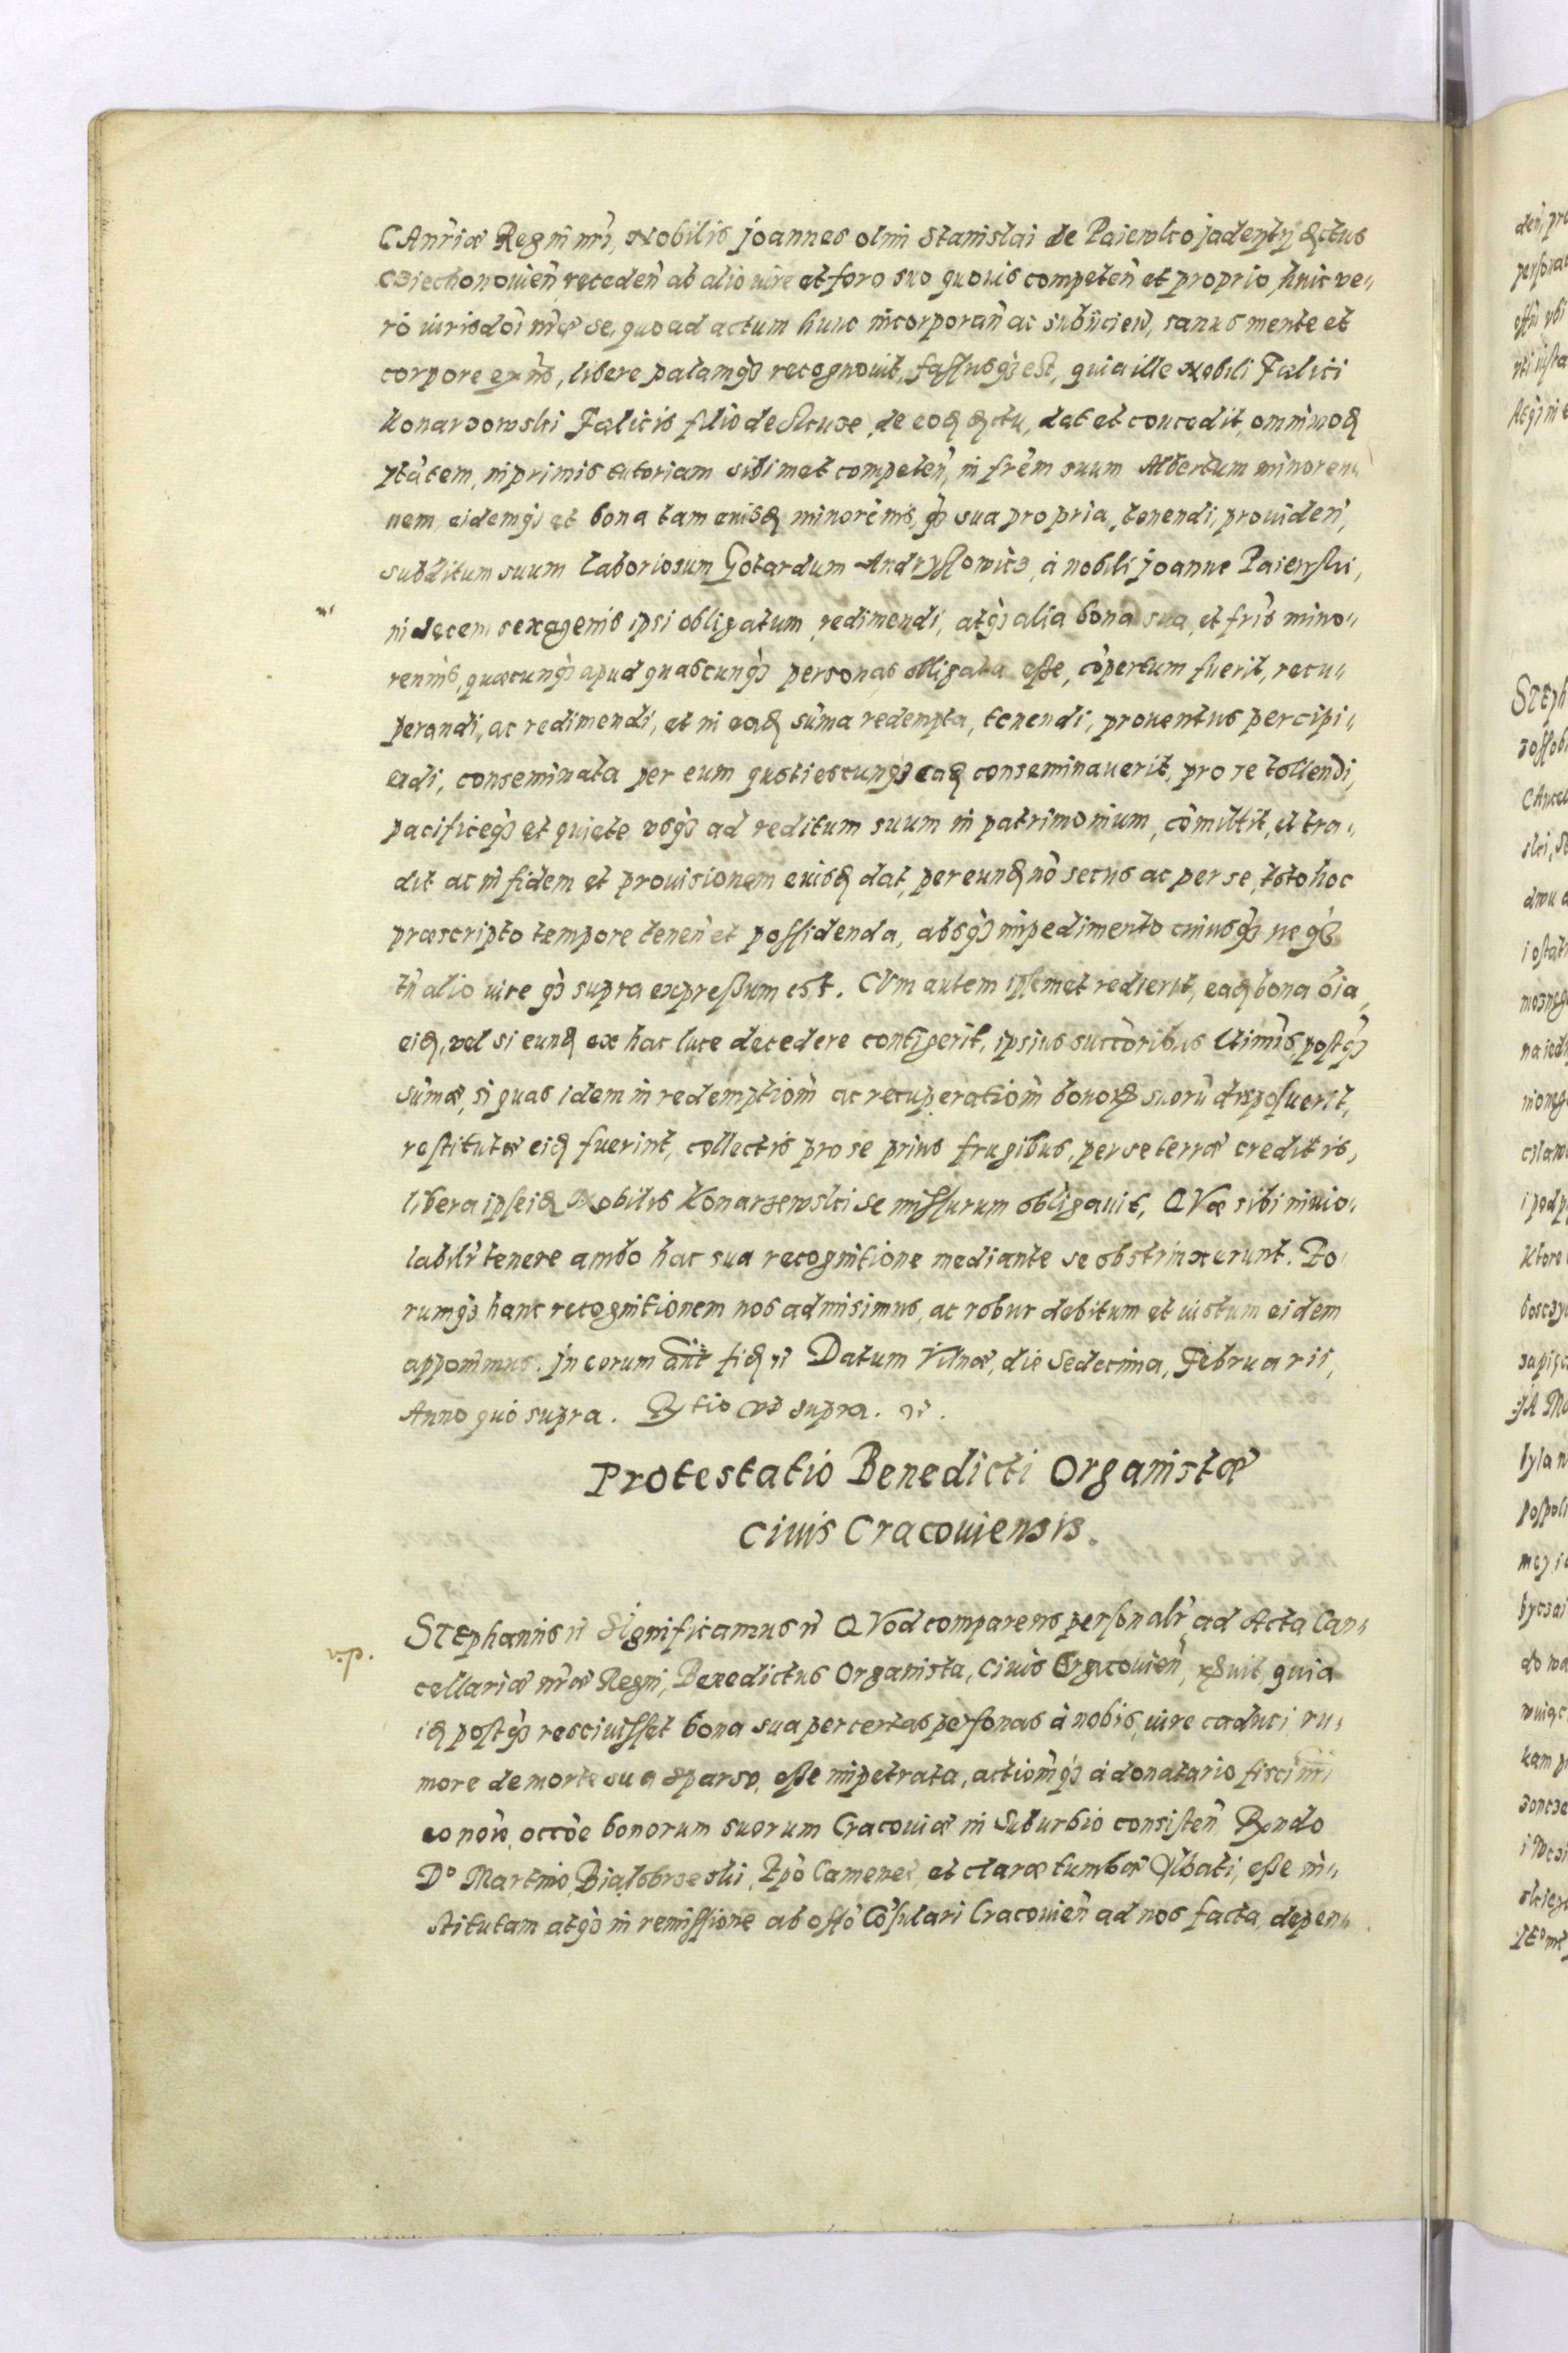 CAnr̃iæ Regni nr̃i, Nobilis Joannes olim Stanislai de Paiewko
Cziechonouien̄ receden̄ ab alio iure et foro suo quouis competen̄ et proprio, huic ve„
ro iurisdōi nr̃æ se, quo ad actum hunc incorporan̄ ac subijcien̄, sanus mente et
corpore exñs, libere palamq₃ recognouit, fassusq₃ est, quia ille Nobili Fælici
Konarzowski Fælicis filio de dat et concedit, omnimodꝫ
ptãtem, inprimis tutoriam sibimet competen̄, in frẽm suum Albertum minoren„
nem, eidemq₃ et bona tam eiusdꝫ minorẽnis, q̃₃ sua propria, tenendi, prouiden̄,
subditum suum laboriosum Gotardum Andryssowicz, à nobili Joanne Paiewski,
in decem sexagenis ipsi obligatum, redimendi, atq₃ alia bona sua, et fr̃is mino„
rennis, quæcunq₃ apud quascunq₃ personas obligata esse, cõpertum fuerit, recu„
perandi, ac redimendi, et in eadꝫ sũma redempta, tenendi, prouentus percipi„
endi, conseminata per eum quotiescunq₃ eadꝫ conseminauerit, pro se tollendi,
pacificeq₃ et quiete vsq₃ ad reditum suum in patrimonium, cõmittit, et tra„
dit ac in fidem et prouisionem eiusdꝫ dat, per eundꝫ nõ secus ac per se, toto hoc
præscripto tempore tenen̄ et possidenda, absq₃ impedimento cuiusq₃ neq₃
tñ alio iure q̃₃ supra expressum est. CVm autem ipsemet redierit, eadꝫ bona oĩa
eidꝫ, vel si eundꝫ ex hac luce decedere contigerit, ipsius succõribus ltimis, postq̃₃
sũmæ, si quas idem in redemptiom̃ ac recuperatiom̃ bonorꝫ suorũ exposuerit,
restitutæ eidꝫ fuerint, collectis pro se prius frugibus, per se terræ creditis,
libera ipse idꝫ Nobilis Konarzewski se missurum obligauit, QVæ sibi inuio„
labilr̃ tenere ambo hac sua recognitione mediante se obstrinxerunt. Eo„
rumq₃ hanc recognitionem nos admisimus, ac robur debitum et iustum eidem
apponimus. Jn eorum fidꝫ etc Datum Vilnæ, die Sedecima, Februarii,
Anno quo supra. Rtio vt supra. etc.
Protestatio Benedicti Organistæ
Ciuis Cracouiensis.
v.p.
STEphanus etc Significamus etc QVod comparens personalr̃ ad Acta Can„
cellariæ nr̃æ Regni, Benedictus Organista, Ciuis Cracouien̄, quia
idꝫ postq̃₃ resciuisset bona sua per certas personas à nobis, iure caduci ru„
more de morte sua sparso, esse impetrata, actiom̃q₃ à donatario fisci nr̃i
eo noĩe, occõe bonorum suorum Cracouiæ in Suburbio consisten̄, Rẽndo
Dº Martino, Białobrzeski, Epõ Camenec, et claræ tumbæ Abbati, esse in„
stitutam atq₃ in remissione ab offõ Cõsulari Cracouien̄ ad nos facta, depen„